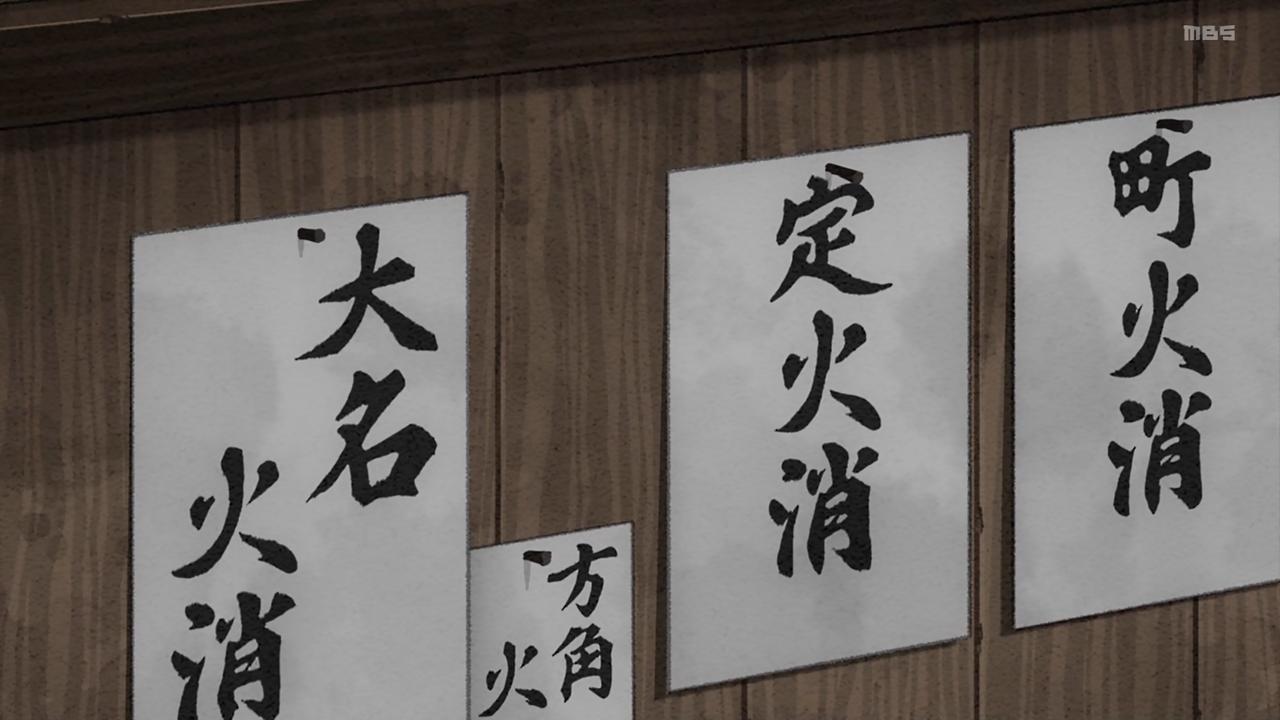 町火消
定火消
大名
火消
方角
火
MBS